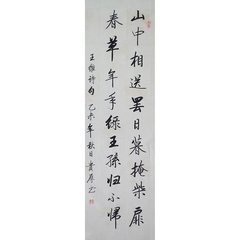 山中相送罢日暮掩柴扉
春草年年绿王孙归不歸
王维诗句 乙未年秋日